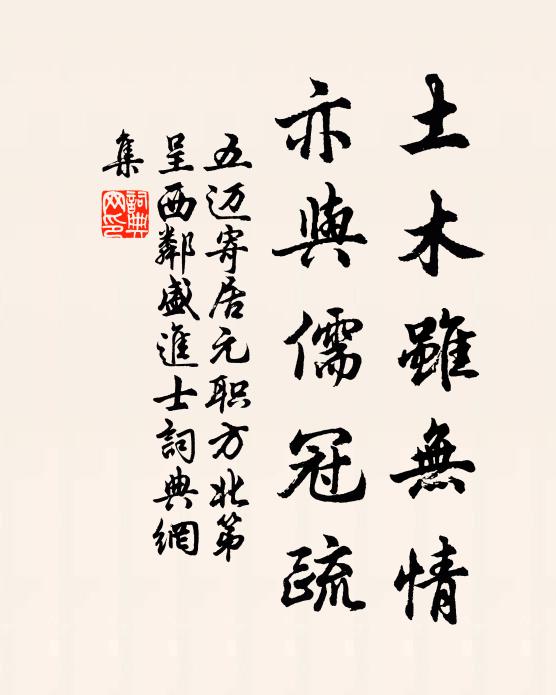 土木雖無情
亦與儒冠疏
五迈寄居元职方北第
呈西鄰盛進士詞典網
集
詞典網印